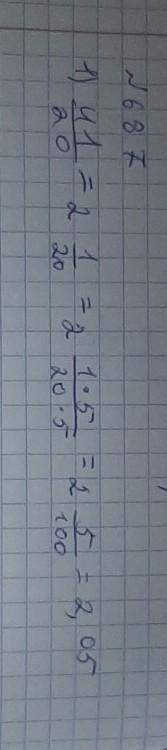 №687
1) 41/20 = 2 1/20 = 2 1·5/20·5 = 2 5/100 = 2,05